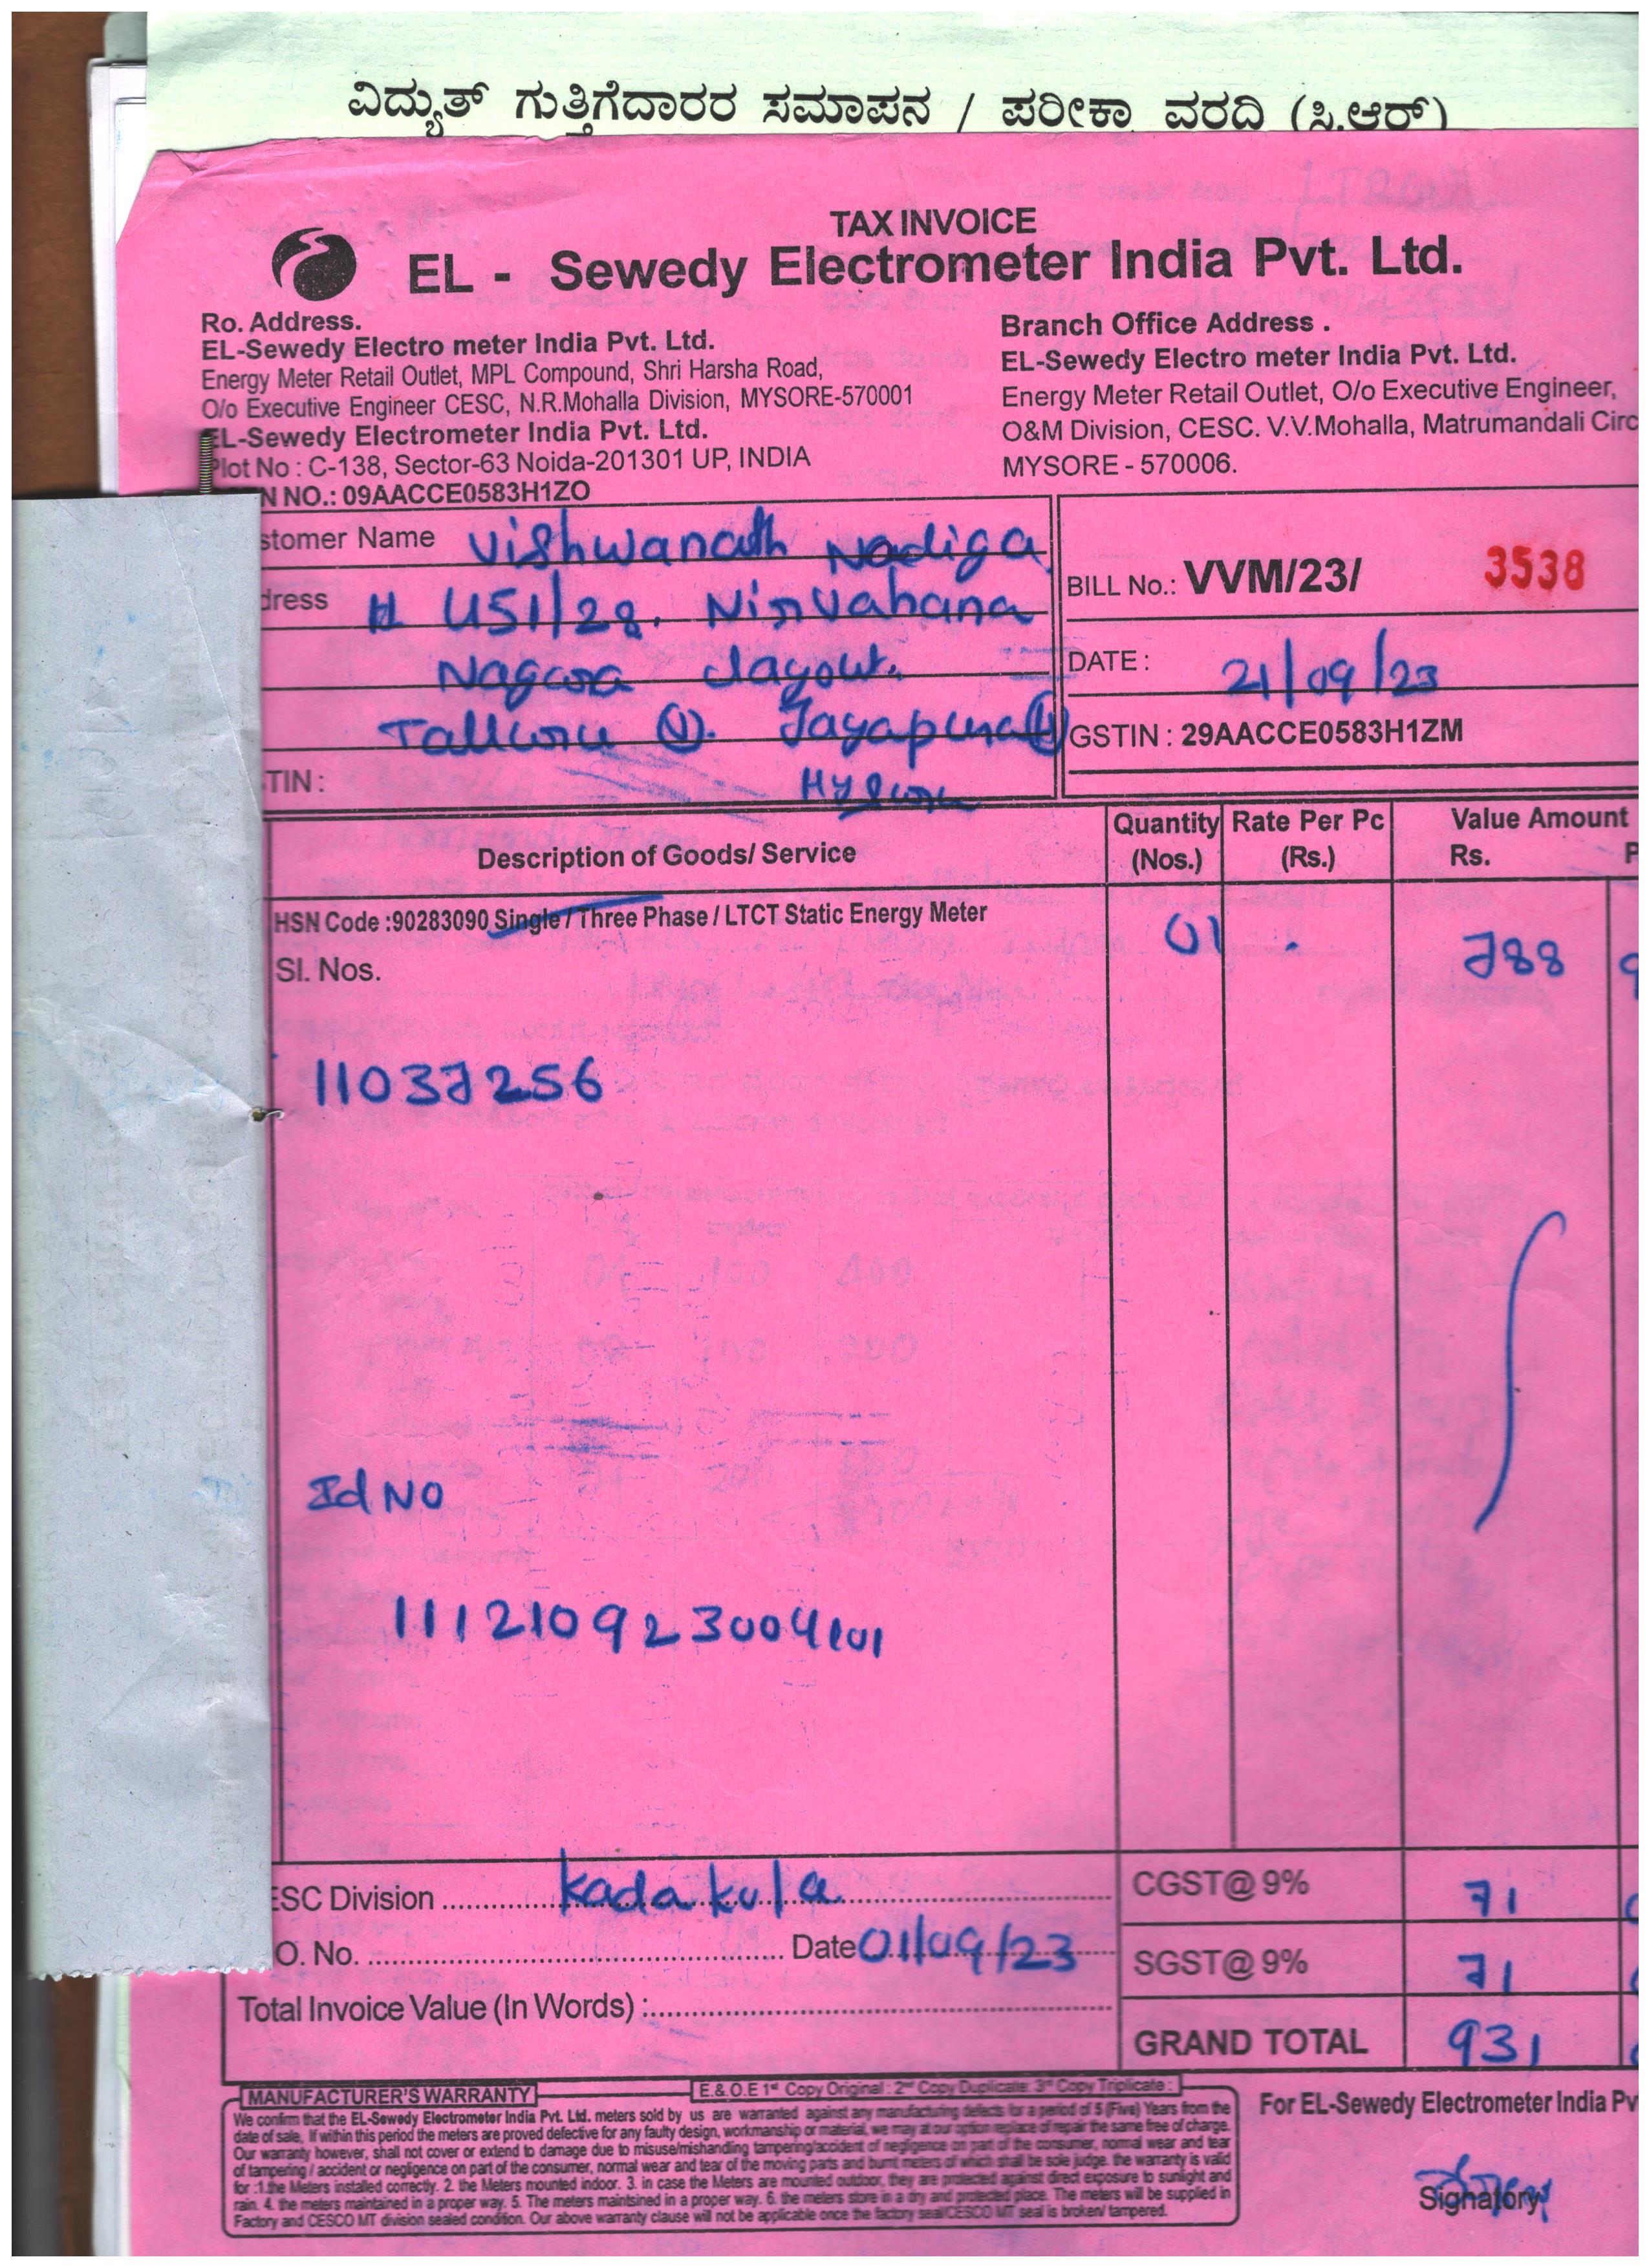 ವಿದ್ಯುತ್ ಗುತ್ತಿಗೆದಾರರ ಸಮಾಪನ / ಪರೀಕ್ಷಾ ವರದಿ (ಸಿ.ಆರ್)
TAX INVOICE
EL - Sewedy Electrometer India Pvt. Ltd.
Ro. Address.
EL-Sewedy Electro meter India Pvt. Ltd.
Energy Meter Retail Outlet, MPL Compound, Shri Harsha Road,
O/o Executive Engineer CESC, N.R.Mohalla Division, MYSORE-570001
EL-Sewedy Electrometer India Pvt. Ltd.
Plot No : C-138, Sector-63 Noida-201301 UP, INDIA
N NO.: 09AACCE0583H1ZO
Branch Office Address .
EL-Sewedy Electro meter India Pvt. Ltd.
Energy Meter Retail Outlet, O/o Executive Engineer,
O&M Division, CESC. V.V.Mohalla, Matrumandali Circ
MYSORE - 570006.
stomer Name Vishwanath Nadiga
dress # 451/28. Nirvahana
Nagara Layout.
Talluru (V). Jayapura (H)
TIN : Mysuru
BILL No.: VVM/23/ 3538
DATE : 21/09/23
GSTIN : 29AACCE0583H1ZM
Description of Goods/ Service Quantity (Nos.) Rate Per Pc (Rs.) Value Amount Rs. P
HSN Code :90283090 Single / Three Phase / LTCT Static Energy Meter 01 788
Sl. Nos.
11037256
Id NO
111210923004101
ESC Division .......... Kadakula
O. No. .......... Date 01/09/23
Total Invoice Value (In Words) :..........
CGST@ 9% 71
SGST@ 9% 71
GRAND TOTAL 931
MANUFACTURER'S WARRANTY E.& O.E 1st Copy Original : 2nd Copy Duplicate: 3rd Copy Triplicate :
We confirm that the EL-Sewedy Electrometer India Pvt. Ltd. meters sold by us are warranted against any manufacturing defects for a period of 5 (Five) Years from the
date of sale, If within this period the meters are proved defective for any faulty design, workmanship or material, we may at our option replace of repair the same free of charge.
Our warranty however, shall not cover or extend to damage due to misuse/mishanding tampering/accident of negligence on part of the consumer, normal wear and tear
of tampering / accident or negligence on part of the consumer, normal wear and tear of the moving parts and burnt meters of which shall be sole judge. the warranty is valid
for :1.the Meters installed correctly. 2. the Meters mounted indoor. 3. in case the Meters are mounted outdoor, they are protected against direct exposure to sunlight and
rain. 4. the meters maintained in a proper way. 5. The meters maintsined in a proper way. 6. the meters store in a dry and protected place. The meters will be supplied in
Factory and CESCO MT division sealed condition. Our above warranty clause will not be applicable once the factory seal/CESCO MT seal is broken/ tampered.
For EL-Sewedy Electrometer India Pv
Signatory